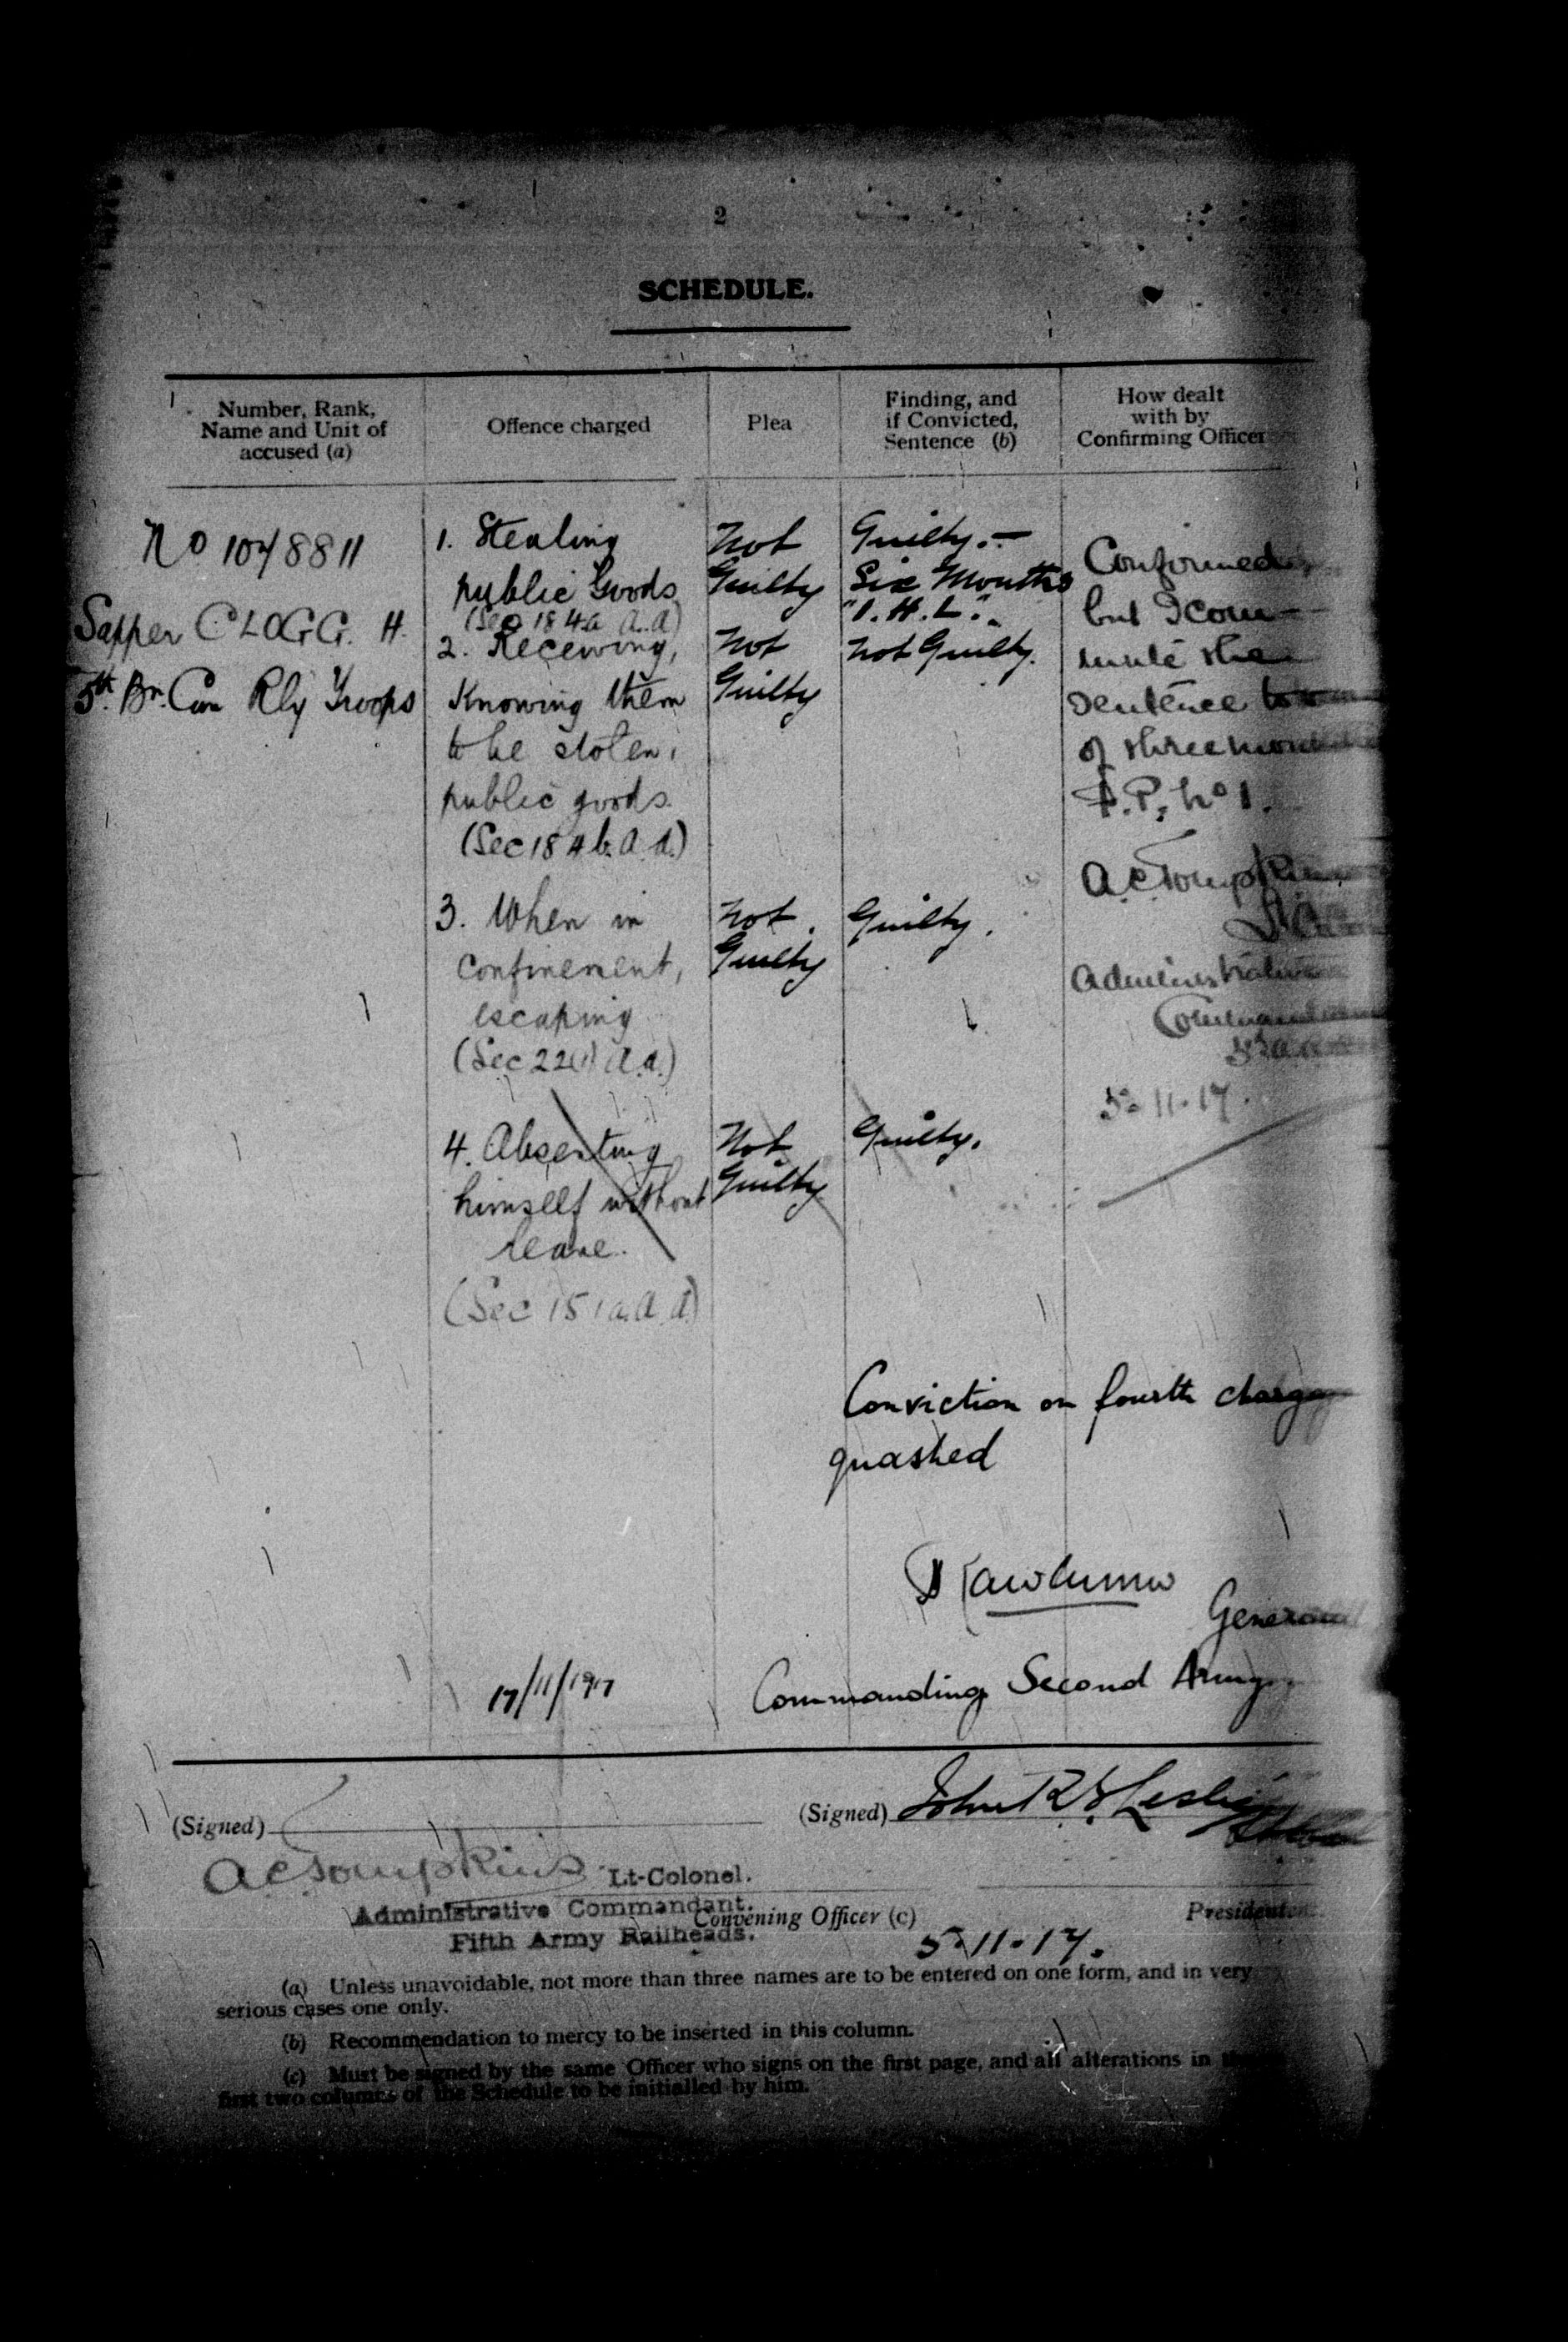 2
SCHEDULE.
Number, Rank,
Name and Unit of
accused (a)
Offence charged
Plea
Finding, and
if Convicted,
Sentence (b)
How dealt
with by
Confirming Officer
No 1048811
Sapper CLOGG. H.
5th. Bn. Can Rly Troops
1. Stealing
public Goods
(Sec 18 4a A.A)
2. Receiving,
Knowing them
to be stolen,
public goods.
(Sec 18 4b. A.A.)
3. When in
confinement,
escaping
(Sec 22(1) A.A.)
4. Absenting
himself without
leave.
(Sec 15 1a. A.A)
Not
Guilty
Not
Guilty
Not
Guilty
Not
Guilty
Guilty.—
Six Months
"I.H.L".
Not Guilty.
Guilty.
Guilty.
Confirmed
but I com-
mute the
sentence to
of three months
F.P. No 1.
A C Tompkins
Administrative
Commandant
5-11-17.
Conviction on fourth charge
quashed
H Rawlinson
General
Commanding Second Army.
17/11/1917
(Signed)
A C Tompkins Lt-Colonel.
Administrative Commandant.
Fifth Army Railheads.
Convening Officer (c)
(Signed) John R S Leslie
President
5-11-17.
(a) Unless unavoidable, not more than three names are to be entered on one form, and in very
serious cases one only.
(b) Recommendation to mercy to be inserted in this column.
(c) Must be signed by the same Officer who signs on the first page, and all alterations in the
first two columns of the Schedule to be initialled by him.